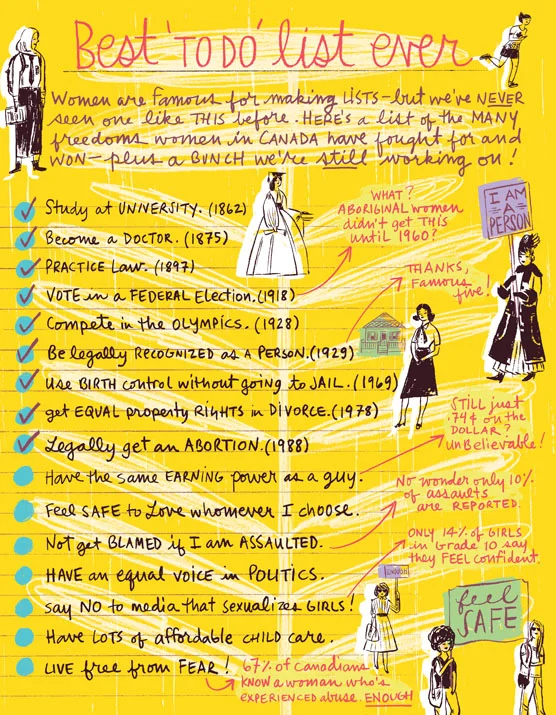 Best 'TO DO' list ever
Women are famous for making LISTS - but we've NEVER
seen one like THIS before. HERE'S a list of the MANY
freedoms women in CANADA have fought for and
WON - plus a BUNCH we're still working on!
Study at UNIVERSITY. (1862)
Become a DOCTOR. (1875)
PRACTICE Law. (1897)
VOTE in a FEDERAL Election. (1918)
WHAT?
ABORIGINAL women
didn't get THIS
until 1960?
I AM
A
PERSON
Compete in the OLYMPICS. (1928)
Be legally RECOGNIZED as a PERSON. (1929)
THANKS,
Famous
five!
Use BIRTH control without going to JAIL. (1969)
get EQUAL property RIGHTS in DIVORCE. (1978)
Legally get an ABORTION. (1988)
Have the same EARNING power as a guy.
STILL just
.74¢ on the
DOLLAR?
unBelievable!
Feel SAFE to Love whomever I choose.
Not get BLAMED if I am ASSAULTED.
No wonder only 10%
of assaults
are REPORTED.
HAVE an equal voice in POLITICS.
say NO to media that sexualizes GIRLS!
ONLY 14% of GIRLS
in Grade 10 say
they FEEL confident.
Have LOTS of affordable CHILD care.
LIVE free from FEAR!
67% of canadians
KNOW a woman who's
EXPERIENCED abuse. ENOUGH
feel
SAFE